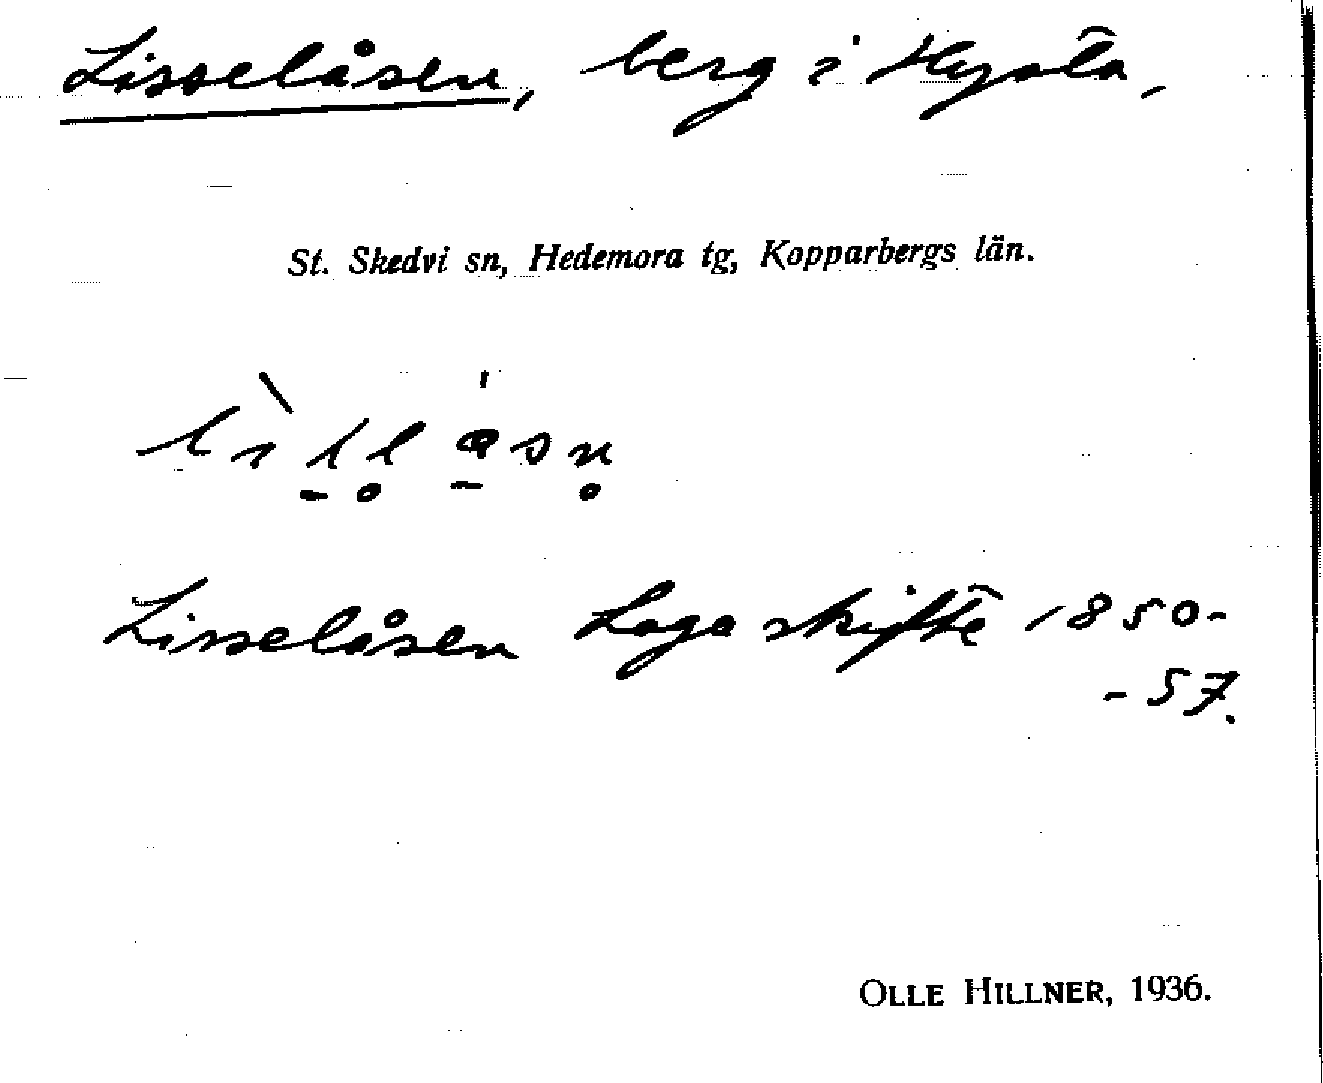 Lisselåsen, berg i Hysta,
St. Skedvi sn, Hedemora tg, Kopparbergs län.
Lisselåsen Laga skifte 1850-
-57.
OLLE HILLNER, 1936.